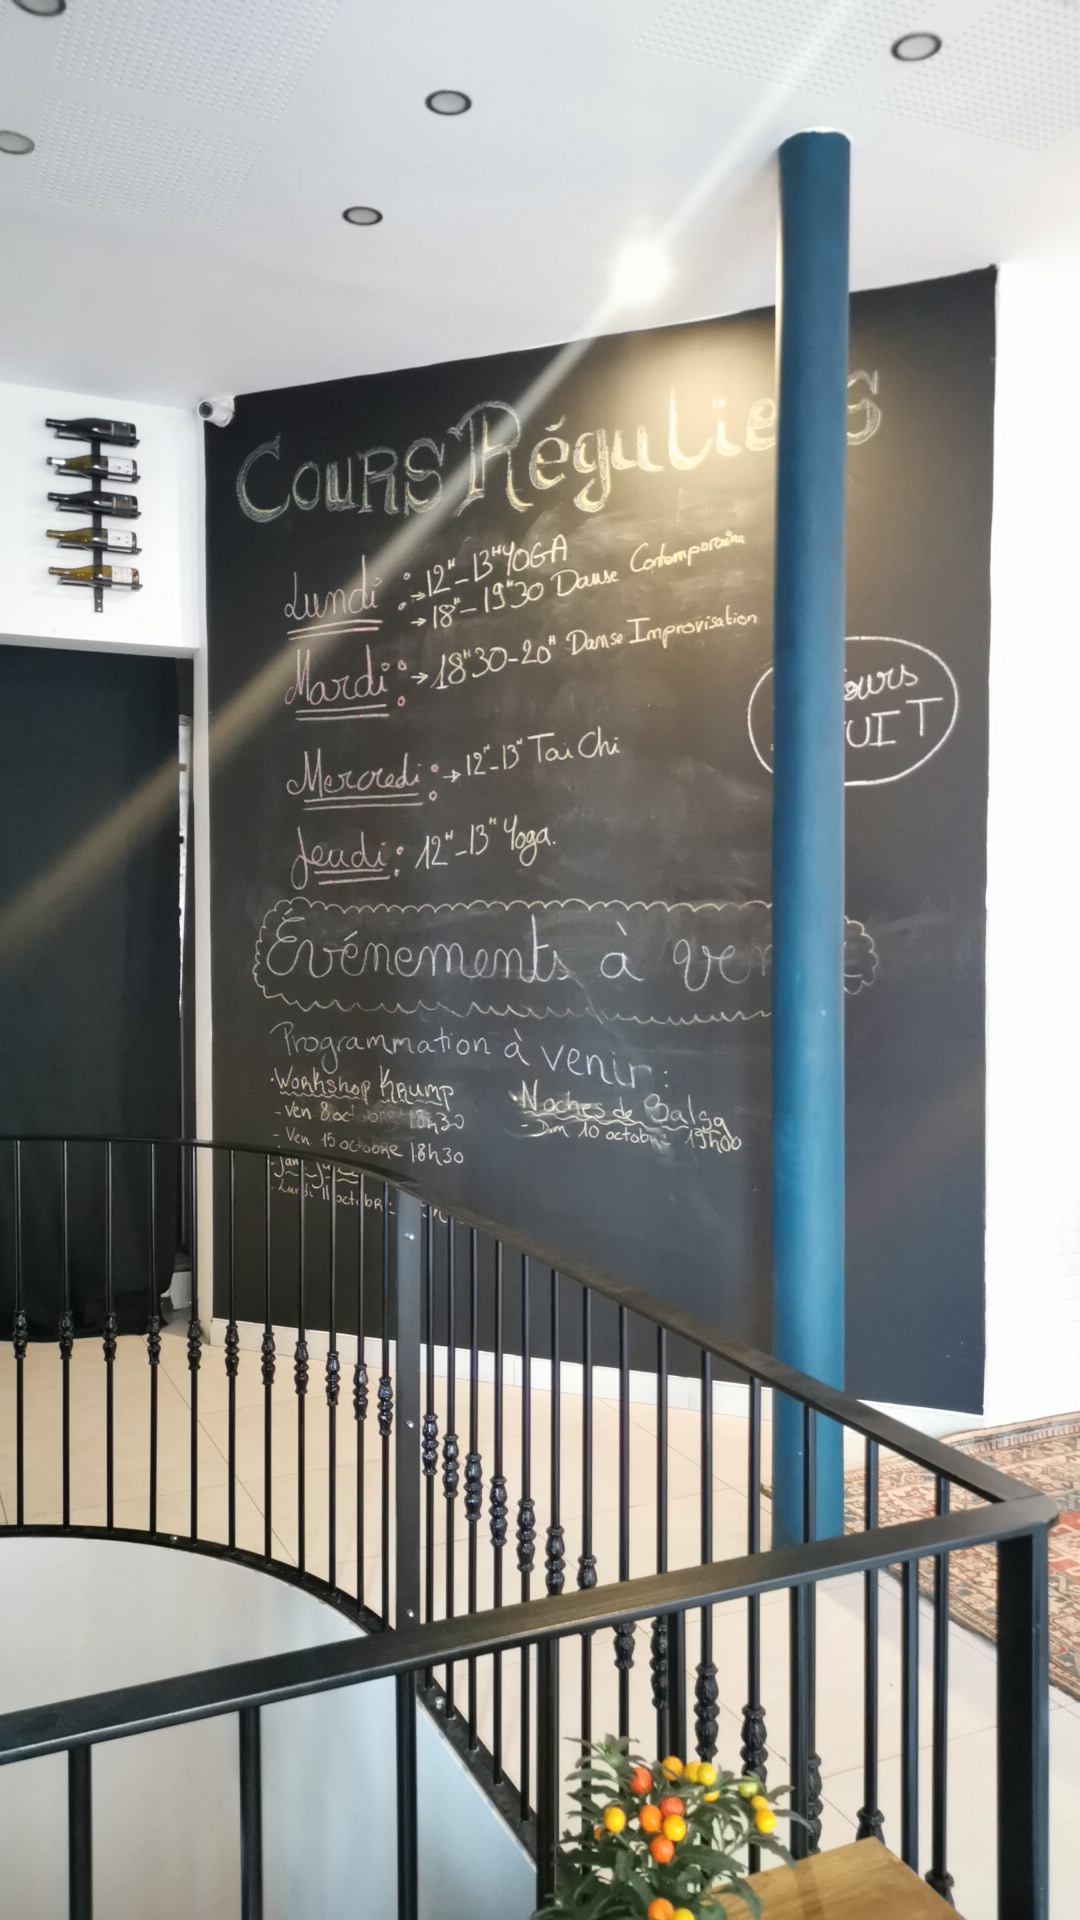 Cours Réguliers
Lundi : → 12H-13H YOGA
→ 18H-19H30 Danse Contemporaine
Mardi : → 18H30-20H Danse Improvisation
Mercredi : → 12H-13H Tai Chi
Jeudi : 12H-13H Yoga.
Événements à
Programmation à venir :
· Workshop KRUMP
- Ven 8 octobre 18h30
- Ven 15 octobre 18h30
· Noches de Salsa
- Dim 10 octobre 19h00
Lundi 11 octobre